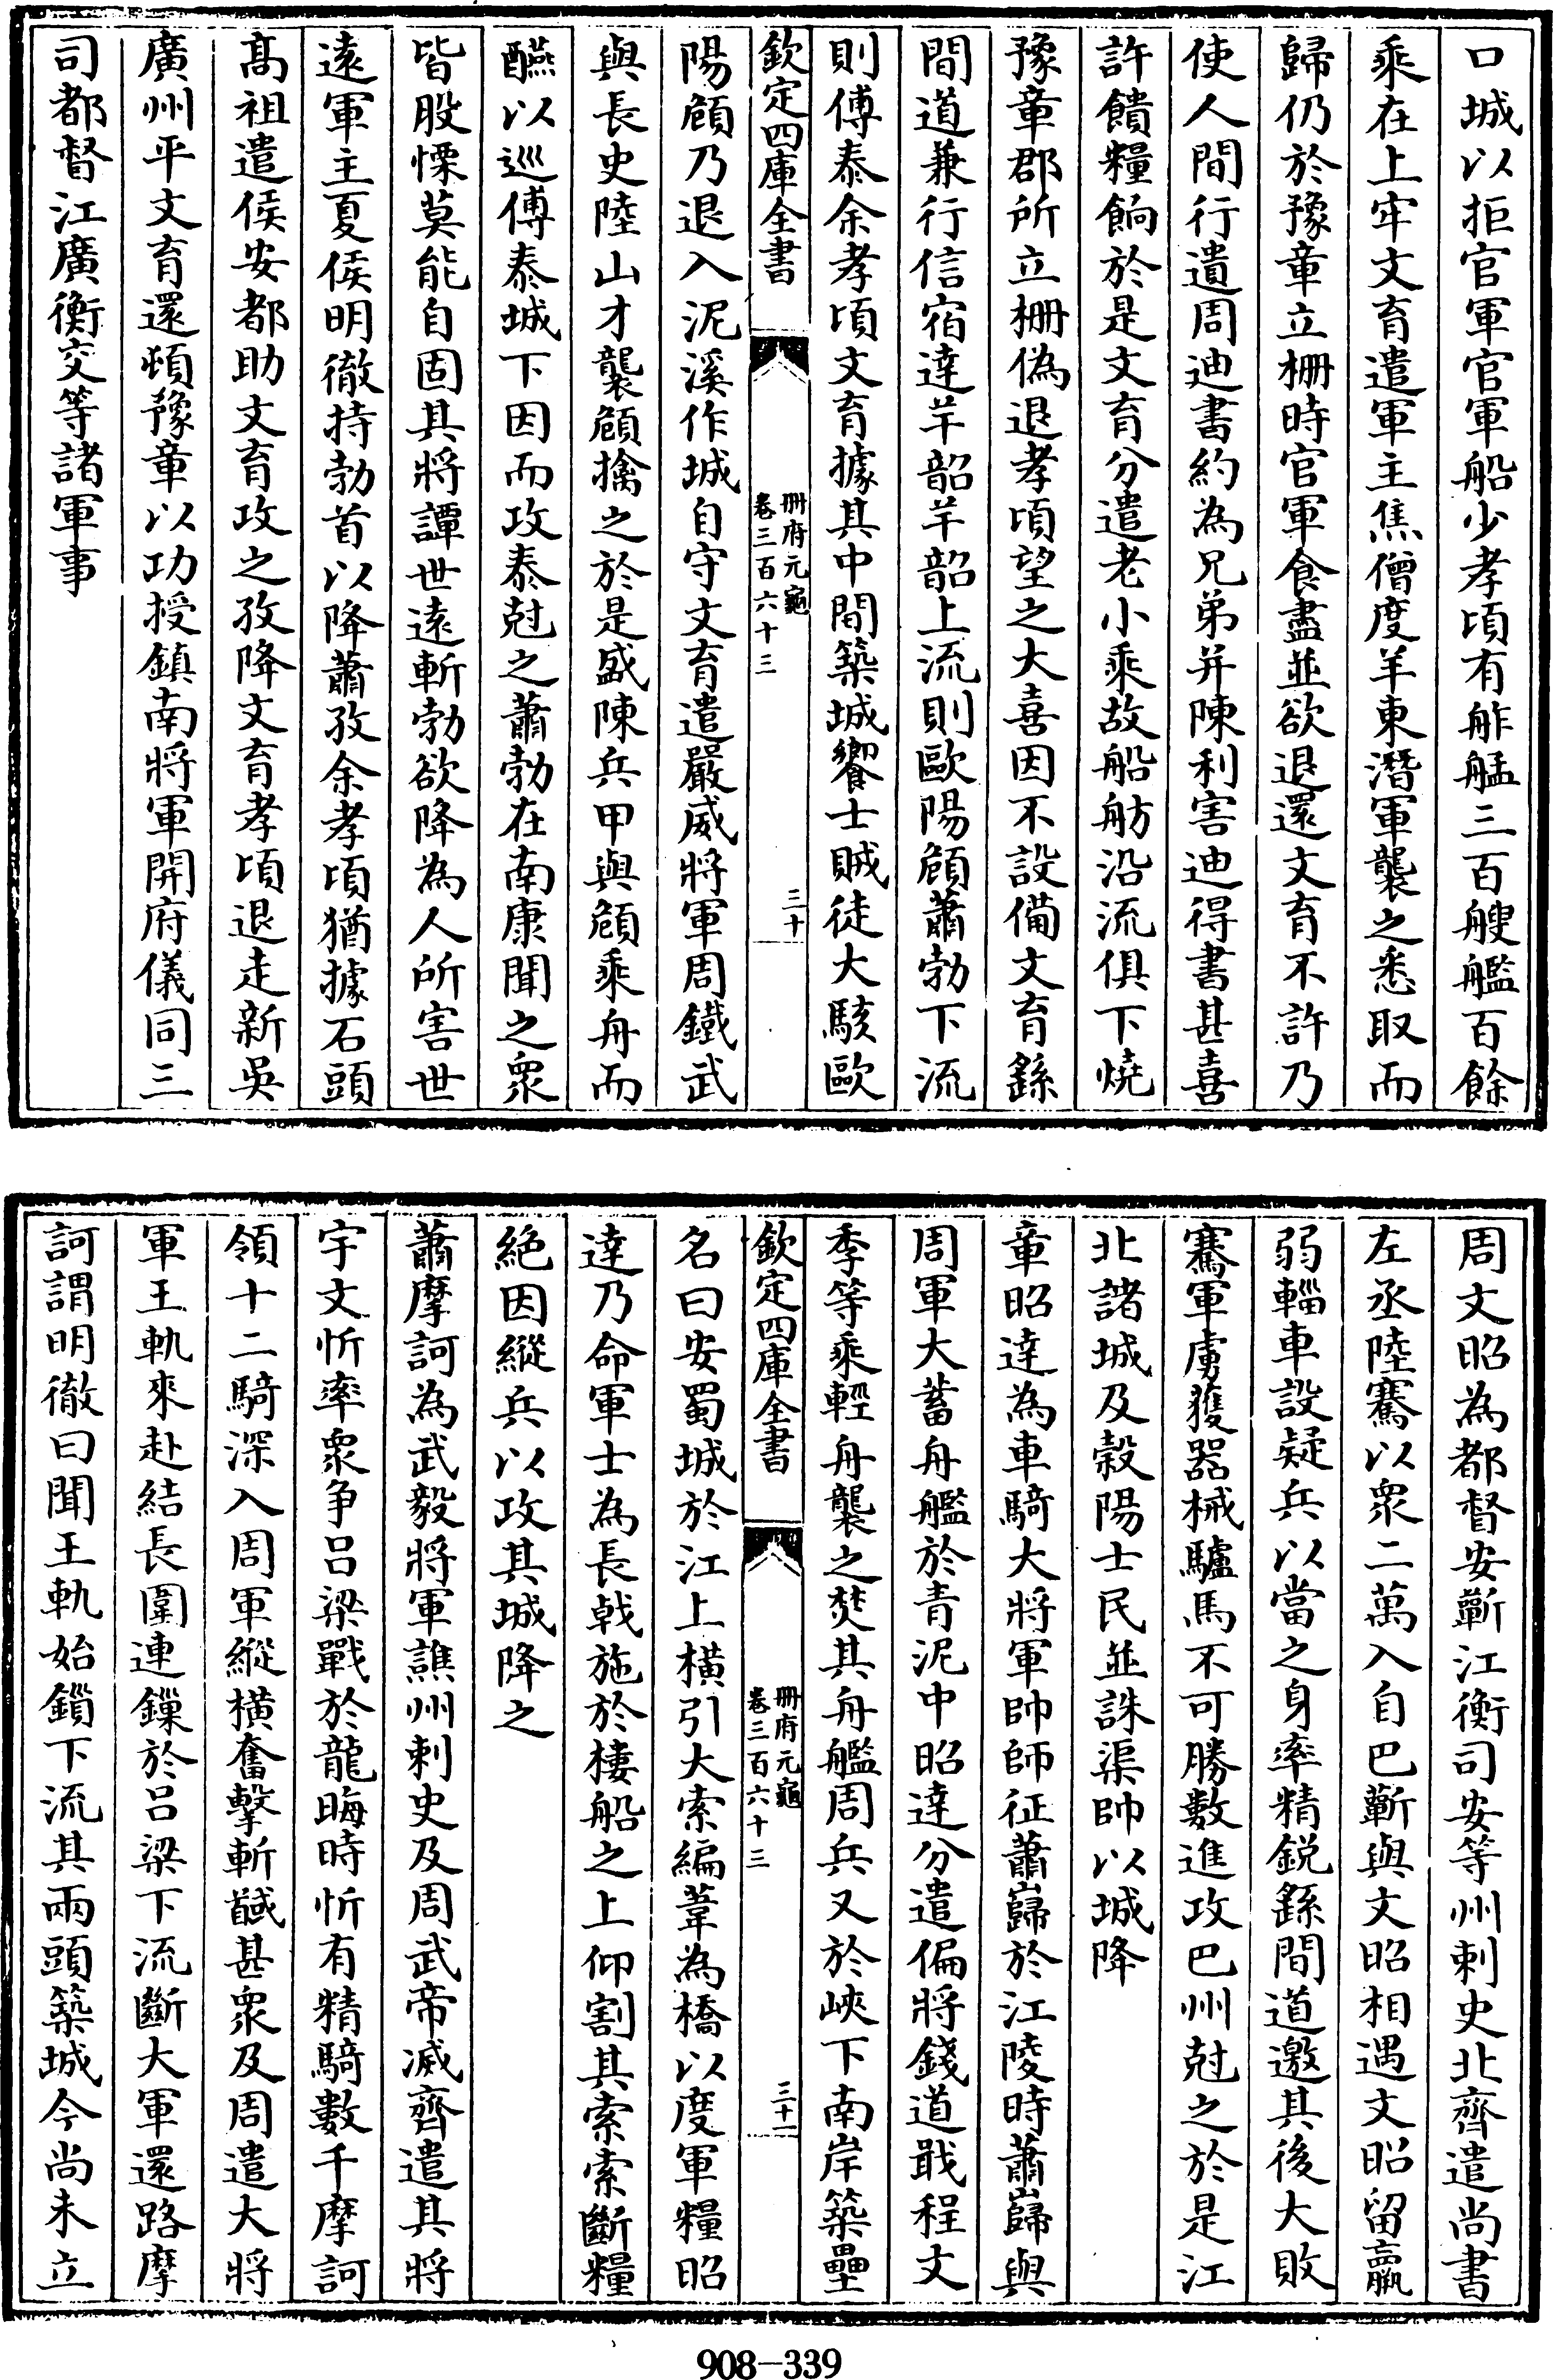 口城以拒官軍官軍船少孝頃有舴艋三百艘艦百餘
乘在上牢文育遣軍主焦僧度羊柬潛軍襲之悉取而
歸仍於豫章立柵時官軍食盡並欲退還文育不許乃
使人間行遺周迪書約為兄弟并陳利害迪得書甚喜
許饋糧餉於是文育分遣老小乘故船舫沿流俱下燒
豫章郡所立柵偽退孝頃望之大喜因不設備文育繇
間道兼行信宿達芊韶芊韶上流則歐陽頠蕭勃下流
則傅泰余孝頃文育據其中間築城饗士賊徒大駭歐
欽定四庫全書
冊府元龜
卷三百六十三
三十
陽頠乃退入泥溪作城自守文育遣嚴威將軍周鐵武
與長史陸山才襲頠擒之於是盛陳兵甲與頠乘舟而
醼以巡傅泰城下因而攻泰尅之蕭勃在南康聞之衆
皆股慄莫能自固其將譚世遠斬勃欲降為人所害世
遠軍主夏侯明徹持勃首以降蕭孜余孝頃猶據石頭
髙祖遣侯安都助文育攻之孜降文育孝頃退走新吳
廣州平文育還頓豫章以功授鎮南將軍開府儀同三
司都督江廣衡交等諸軍事
周文昭為都督安蘄江衡司安等州刺史北齊遣尚書
左丞陸騫以衆二萬入自巴蘄與文昭相遇文昭留羸
弱輜車設疑兵以當之身率精銳繇間道邀其後大敗
騫軍虜獲器械驢馬不可勝數進攻巴州尅之於是江
北諸城及穀陽士民並誅渠帥以城降
章昭達為車騎大將軍帥師征蕭巋於江陵時蕭巋與
周軍大蓄舟艦於青泥中昭達分遣偏將錢道戢程文
季等乘輕舟襲之焚其舟艦周兵又於峽下南岸築壘
欽定四庫全書
冊府元龜
卷三百六十三
三十一
名曰安蜀城於江上橫引大索編葦為橋以度軍糧昭
達乃命軍士為長戟施於樓船之上仰割其索索斷糧
絕因縱兵以攻其城降之
蕭摩訶為武毅將軍譙州刺史及周武帝滅齊遣其將
宇文忻率衆爭吕梁戰於龍晦時忻有精騎數千摩訶
領十二騎深入周軍縱橫奮擊斬馘甚衆及周遣大將
軍王軌來赴結長圍連鏁於吕梁下流斷大軍還路摩
訶謂明徹曰聞王軌始鎖下流其兩頭築城今尚未立
908-339